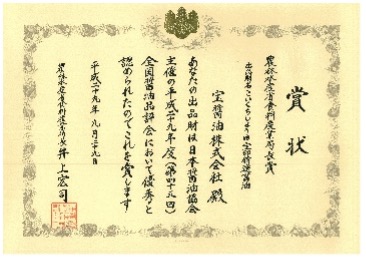 賞状
農林水産省食料産業局長賞
出品財名 こいくちしょうゆ 宝醤油
宝醤油株式会社 殿
あなたの出品財は日本醤油協会
主催の平成二十九年度(第四十五回)
全国醤油品評会において優秀と
認められたのでこれを賞します
平成二十九年 九月二十九日
農林水産省食料産業局長 井上宏司